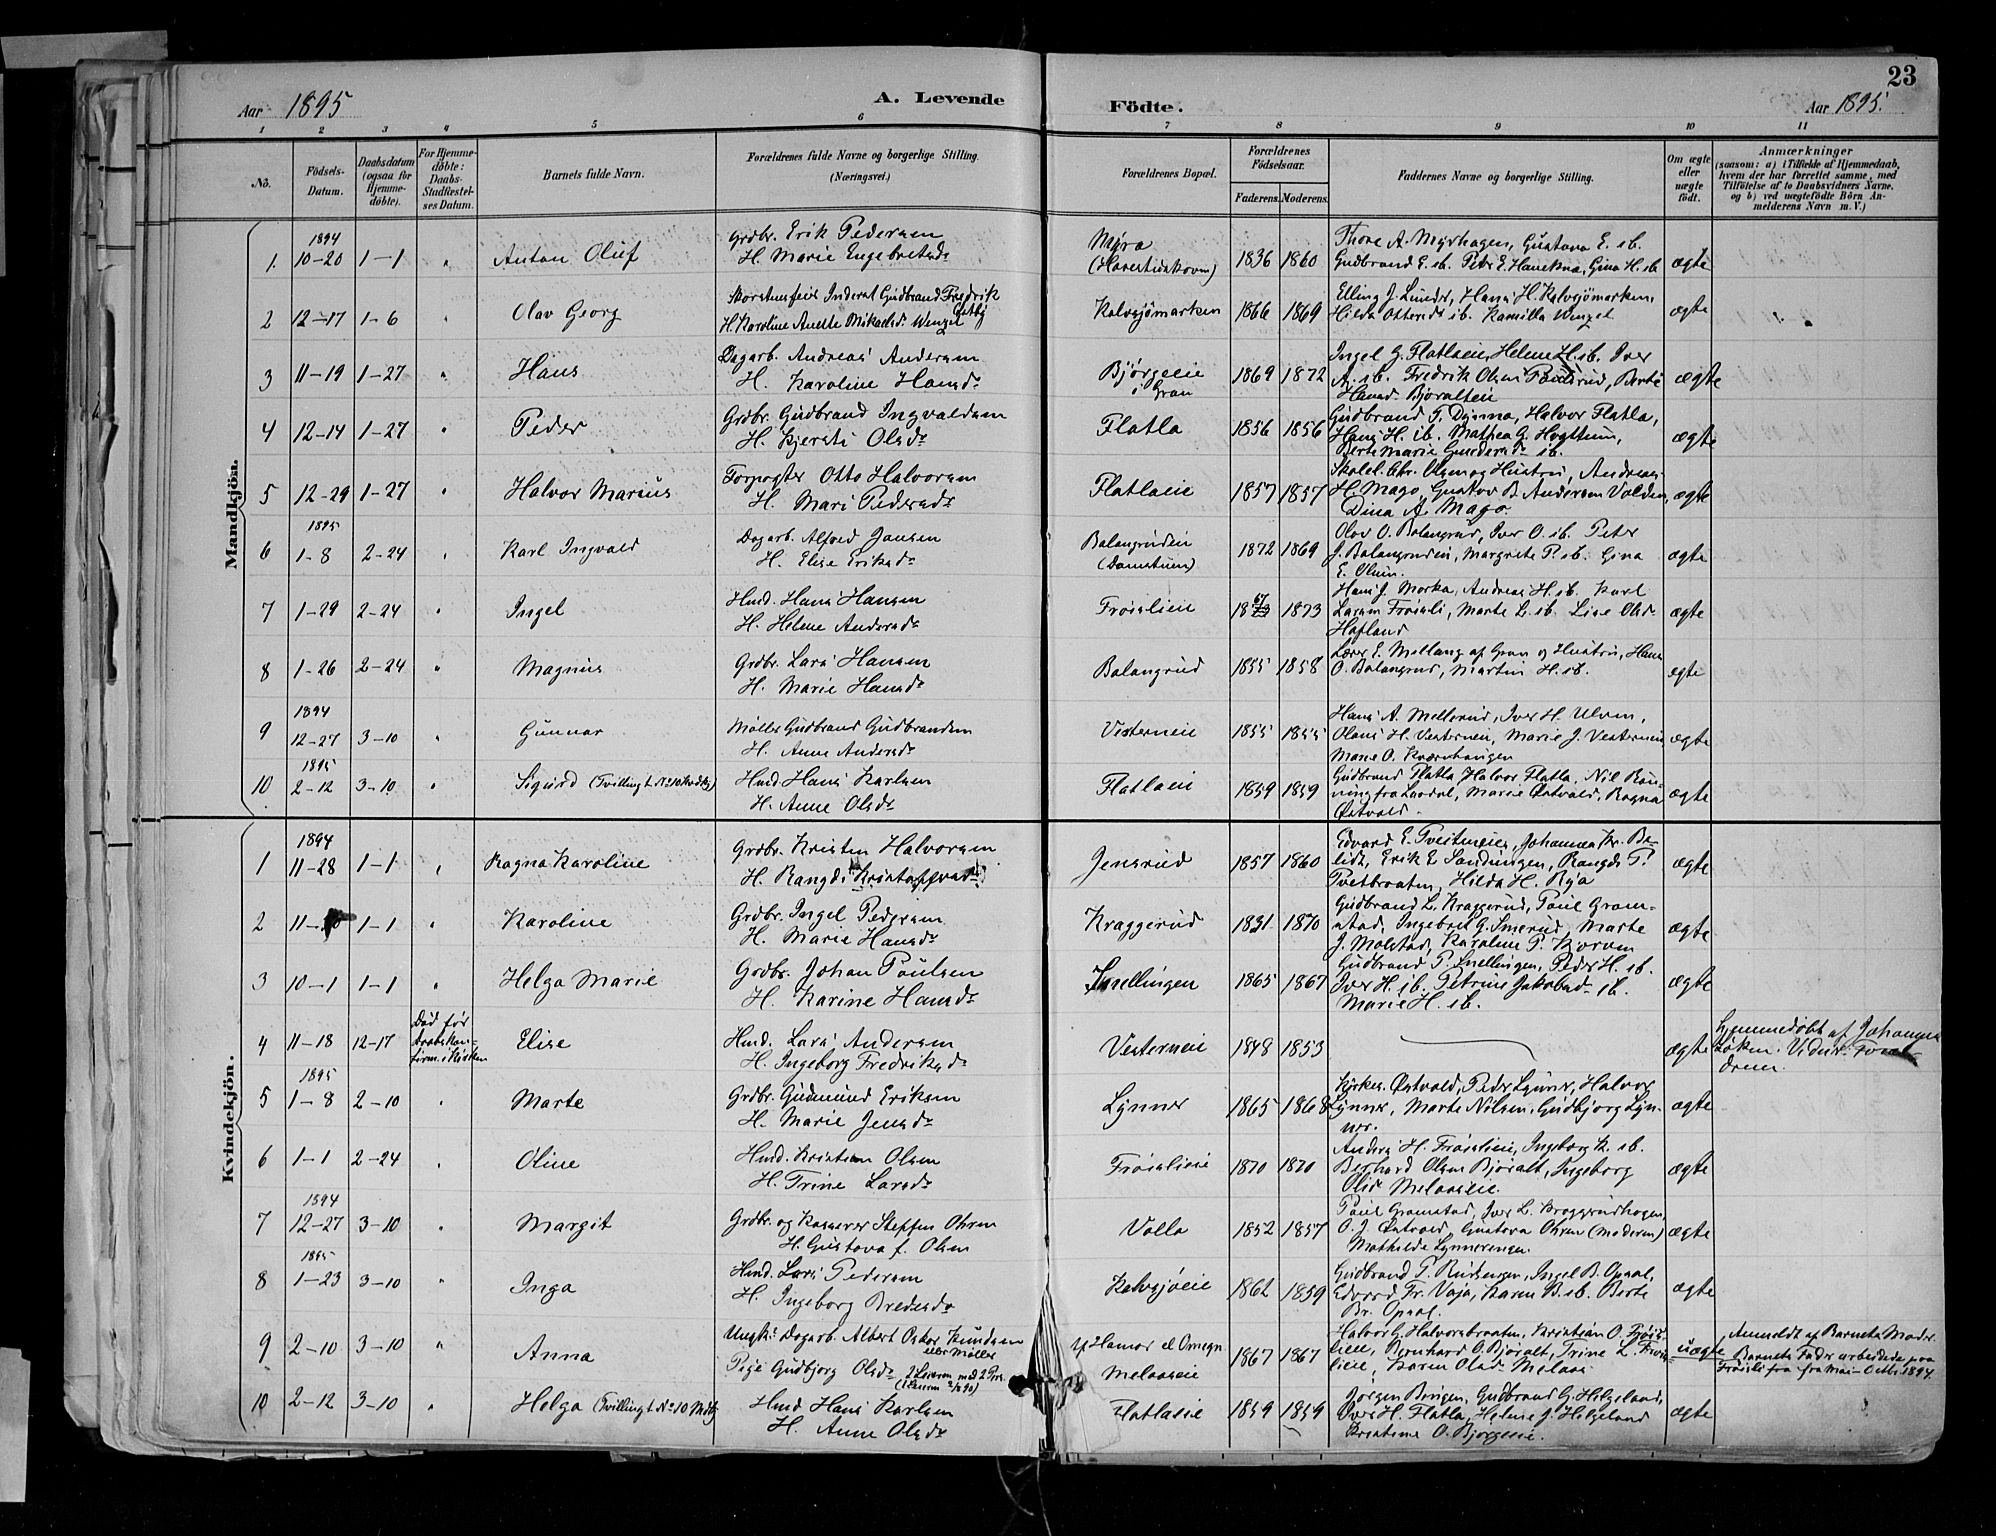 23
Aar 1895
A. Levende Födte.
Aar 1895.
1 2 3 4 5 6 7 8 9 10 11
No.
Födsels-Datum.
Daabsdatum (ogsaa for Hjemme-döbte).
For Hjemme-döbte: Daabs-Stadfæstel-ses Datum.
Barnets fulde Navn.
Forældrenes fulde Navne og borgerlige Stilling. (Næringsvei.)
Forældrenes Bopæl.
Forældrenes Födselsaar.
Faderens. Moderens.
Faddernes Navne og borgerlige Stilling.
Om ægte eller uægte født.
Anmærkninger
(saasom: a) i Tilfælde af Hjemmedaab, hvem der har forrettet samme, med Tilföielse af to Daabsvidners Navne, og b) ved uægtefödte Börn Anmelderens Navn m. V.)
Mandkjön.
1. 1894 10-20 1-1 " Anton Oluf Grdbr. Erik Pedersen H. Marie Engebretsdr Myra 1836 1860 Thore A. Myrhagen, Gustava E. ib. Gudbrand E. ib. Gina H. ib ægte
2 12-17 1-6 " Olav Georg Skorstensfeier Gudbrand Fredrik H. Karoline Anette Mikaelsdr Wenzel Kalvsjömarken 1866 1869 Elling J. Lunder, Hans H. Kalvsjömarken, Hilda ib. Kamilla Wenzel ægte
3 11-19 1-27 " Hans Dagarb. Andreas Andersen H. Karoline Hansdr Bjørgeeie i Gran 1869 1872 Ingel G. Flatlaeie, Helene H. ib. Iver A. ib. Fredrik Olsen Berte Hansd. ægte
4 12-14 1-27 " Peder Grdbr. Gudbrand Ingvaldsen H. Kjersti Olsdr Flatla 1856 1856 Gudbrand T. Dynna, Halvor Flatla, Hans H. ib. Mathea G. Berte Marie ib. ægte
5 12-29 1-27 " Halvor Marius Otto Halvorsen H. Mari Pedersdr Flatlaeie 1857 1857 Skolel. Chr. Olsen og Hustru, Andreas H. Mago, Gustav B. Andersen Volden, Dina A. Mago. ægte
6 1895 1-8 2-24 " Karl Ingvald Dagarb. Alfred Jansen H. Elise Eriksdr Balangrudeie 1872 1869 Olav O. Balangrud, Iver O. ib. Peter J. Balangrudeie, Margrete P. ib. Gina E. ægte
7 1-29 2-24 " Ingel Husd. Hans Hansen H. Helene Andersdr Frøislieie 1867 1873 Hans J. Morka, Andreas H. ib. Karl Larsen Frøisli, Marte L. ib. Lise Olsd. ægte
8 1-26 2-24 " Magnus Grdbr. Lars Hansen H. Marie Hansdr Balangrud 1855 1858 Lærer E. Mellang af Gran og Hustru, Hans O. Balangrud, Martin H. ib. ægte
9 1894 12-27 3-10 " Gunnar Møller Gudbrand Gudbrandsen H. Anne Andersdr Vesterneie 1855 1855 Hans A. Mellerud, Iver H. Ulven, Olaus H. Vesterneie, Marie J. Vesterneie ægte
10 1895 2-12 3-10 " Sigurd (Tvilling t. No 10 Kvdkj) Husd. Hans Karlsen H. Anne Olsdr Flatlaeie 1859 1859 Gudbrand Flatla, Halvor Flatla, Marie Østvold, Ragna Østvold. ægte
Kvindekjön.
1 1894 11-28 1-1 " Ragna Karoline Grdbr. Kristen Halvorsen H. Rangdi Kristoffersdr Jensrud 1857 1860 Edvard E. Tveitmeier, Erik E. Sandungen, Rangdi T. Tveitbraaten, Hilda H. Rya ægte
2 1-1 " Karoline Grdbr. Ingel Pedersen H. Marie Hansdr Kraggerud 1831 1870 Gudbrand L. Kraggerud, Paul Gramstad, Ingebret G. Smerud, Marte J. Molstad, Karoline P. ægte
3 10-1 1-1 " Helga Marie Grdbr. Johan Paulsen H. Karine Hansdr Snellingen 1865 1867 Gudbrand P. Snellingen, Peder H. ib. Iver H. ib. Petrine Jakobsdr ib. Marie H. ib. ægte
4 11-18 12-17 Død før Daabskonfirm. i Kirken Elise Husd. Lars Andersen H. Ingeborg Fredriksdr Vesterneie 1848 1853 ægte Hjemmedøbt af Johannes Løken. Vidner: Forældrene.
5 1895 1-8 2-10 " Marte Grdbr. Gudmund Eriksen H. Marie Jensdr Lynner 1865 1868 Kirkes. Østvold, Peder Lynner, Halvor Lynner, Marte Nilsen, Gudbjørg Lynner. ægte
6 1-1 2-24 " Oline Husd. Kristian Olsen H. Trine Larsdr Frøislieie 1870 1870 Anders H. Frøislieie, Ingeborg K. ib. Bernhard Olsen Bjøralt, Ingeborg Olsd. Melaaseie. ægte
7 1894 12-27 3-10 " Margit Grdbr. og Kasserer Steffen Ohren H. Gustava f. Olsen Volla 1852 1857 Paul Gramstad, Iver L. O. J. Østvold, Gustava Ohren (moderen) Mathilde Lynnerengen ægte
8 1895 1-23 3-10 " Inga Husd. Lars Pedersen H. Ingeborg Bredesdr Kalvsjøeie 1862 1859 Gudbrand P. Ingel B. Opsal, Edvard Fr. Vøja, Karen B. ib. Berte Br. Opsal. ægte
9 2-10 3-10 " Anna Ungk. Dagarb. Albert Oskar Knudsen eller Møller Pige Gudbjørg Olsdr Hamar el. Omegn Melaaseie 1867 1867 Halvor G. Halvorsbraaten, Kristian O. Frøislieie, Bernhard O. Bjøralt, Trine L. Frøislieie, Karen Olsd. Melaas uægte Anmeldt af Barnets Moder. Barnets Fader arbeidede paa Frøisli fra Mai-Octbr. 1894.
10 2-12 3-10 " Helga (Tvilling t. No 10 Mdkj) Husd. Hans Karlsen H. Anne Olsdr Flatlaeie 1859 1859 Jørgen Gudbrand G. Helgeland, Iver H. Flatla, Helene J. Helgeland Kristine O. Bjørgeeie. ægte